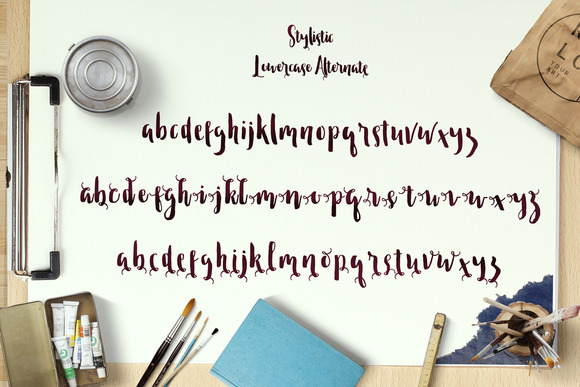 Stylistic
Lowercase Alternate
abcdefghijklmnopqrstuvwxyz
abcdefghijklmnopqrstuvwxyz
abcdefghijklmnopqrstuvwxyz
YOUR
ART